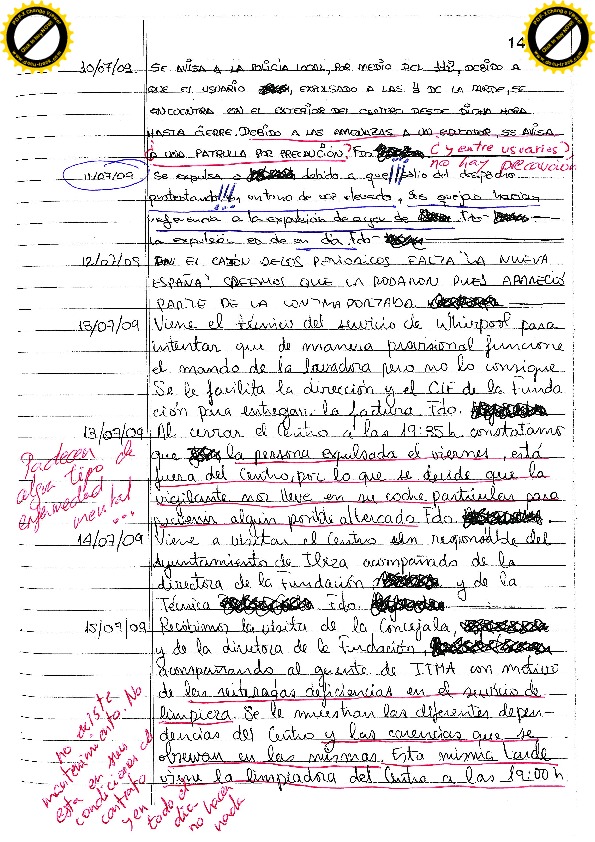 14
10/07/09 SE AVISA A LA POLICIA LOCAL, POR MEDIO DEL 112, DEBIDO A
QUE EL USUARIO EXPULSADO A LAS 4 DE LA TARDE, SE
ENCUENTRA EN EL EXTERIOR DEL CENTRO DESDE DICHA HORA
HASTA CIERRE. DEBIDO A LAS AMENAZAS A UN EDUCADOR, SE AVISA
A UNA PATRULLA POR PRECAUCION? Fdo. (y entre usuarios?
no hay precaución
11/07/09 Se expulsa a debido a que salio del despacho
protestando en un tono de voz elevado, sus quejas hacian
referencia a la expulsión de ayer de Fdo-
La expulsión es de un dia. Fdo-
12/07/09 EN EL CAJÓN DE LOS PERIODICOS FALTA "LA NUEVA
ESPAÑA" CREEMOS QUE LA ROBARON PUES APARECIÓ
PARTE DE LA CONTRAPORTADA
13/07/09 Viene el técnico del servicio de Whirpool para
intentar que de manera provisional funcione
el mando de la lavadora pero no lo consigue.
Se le facilita la dirección y el CIF de la Funda
ción para entregar la factura. Fdo.
13/07/09 Al cerrar el Centro a las 19:35h constatamos
que la persona expulsada el viernes, está
fuera del Centro, por lo que se decide que la
vigilante nos lleve en su coche particular para
prevenir algún posible altercado Fdo.
Padecen
algún tipo de
enfermedad
mental
...
14/07/09 Viene a visitar el Centro un responsable del
Ayuntamiento de acompañado de la
directora de la Fundación y de la
Técnica Fdo.
15/07/09 Recibimos la visita de la Concejala
y de la directora de la Fundación
acompañando al gerente de ITMA con motivo
de las deficiencias en el servicio de
limpieza. Se le muestran las diferentes depen-
dencias del Centro y las carencias que se
observan en las mismas. Esta misma tarde
viene la limpiadora del Centro a las 19:00h
no existe
mantenimiento. No
esta en sus
condiciones el
contrato
y en
todo el
dia
no hacen
nada